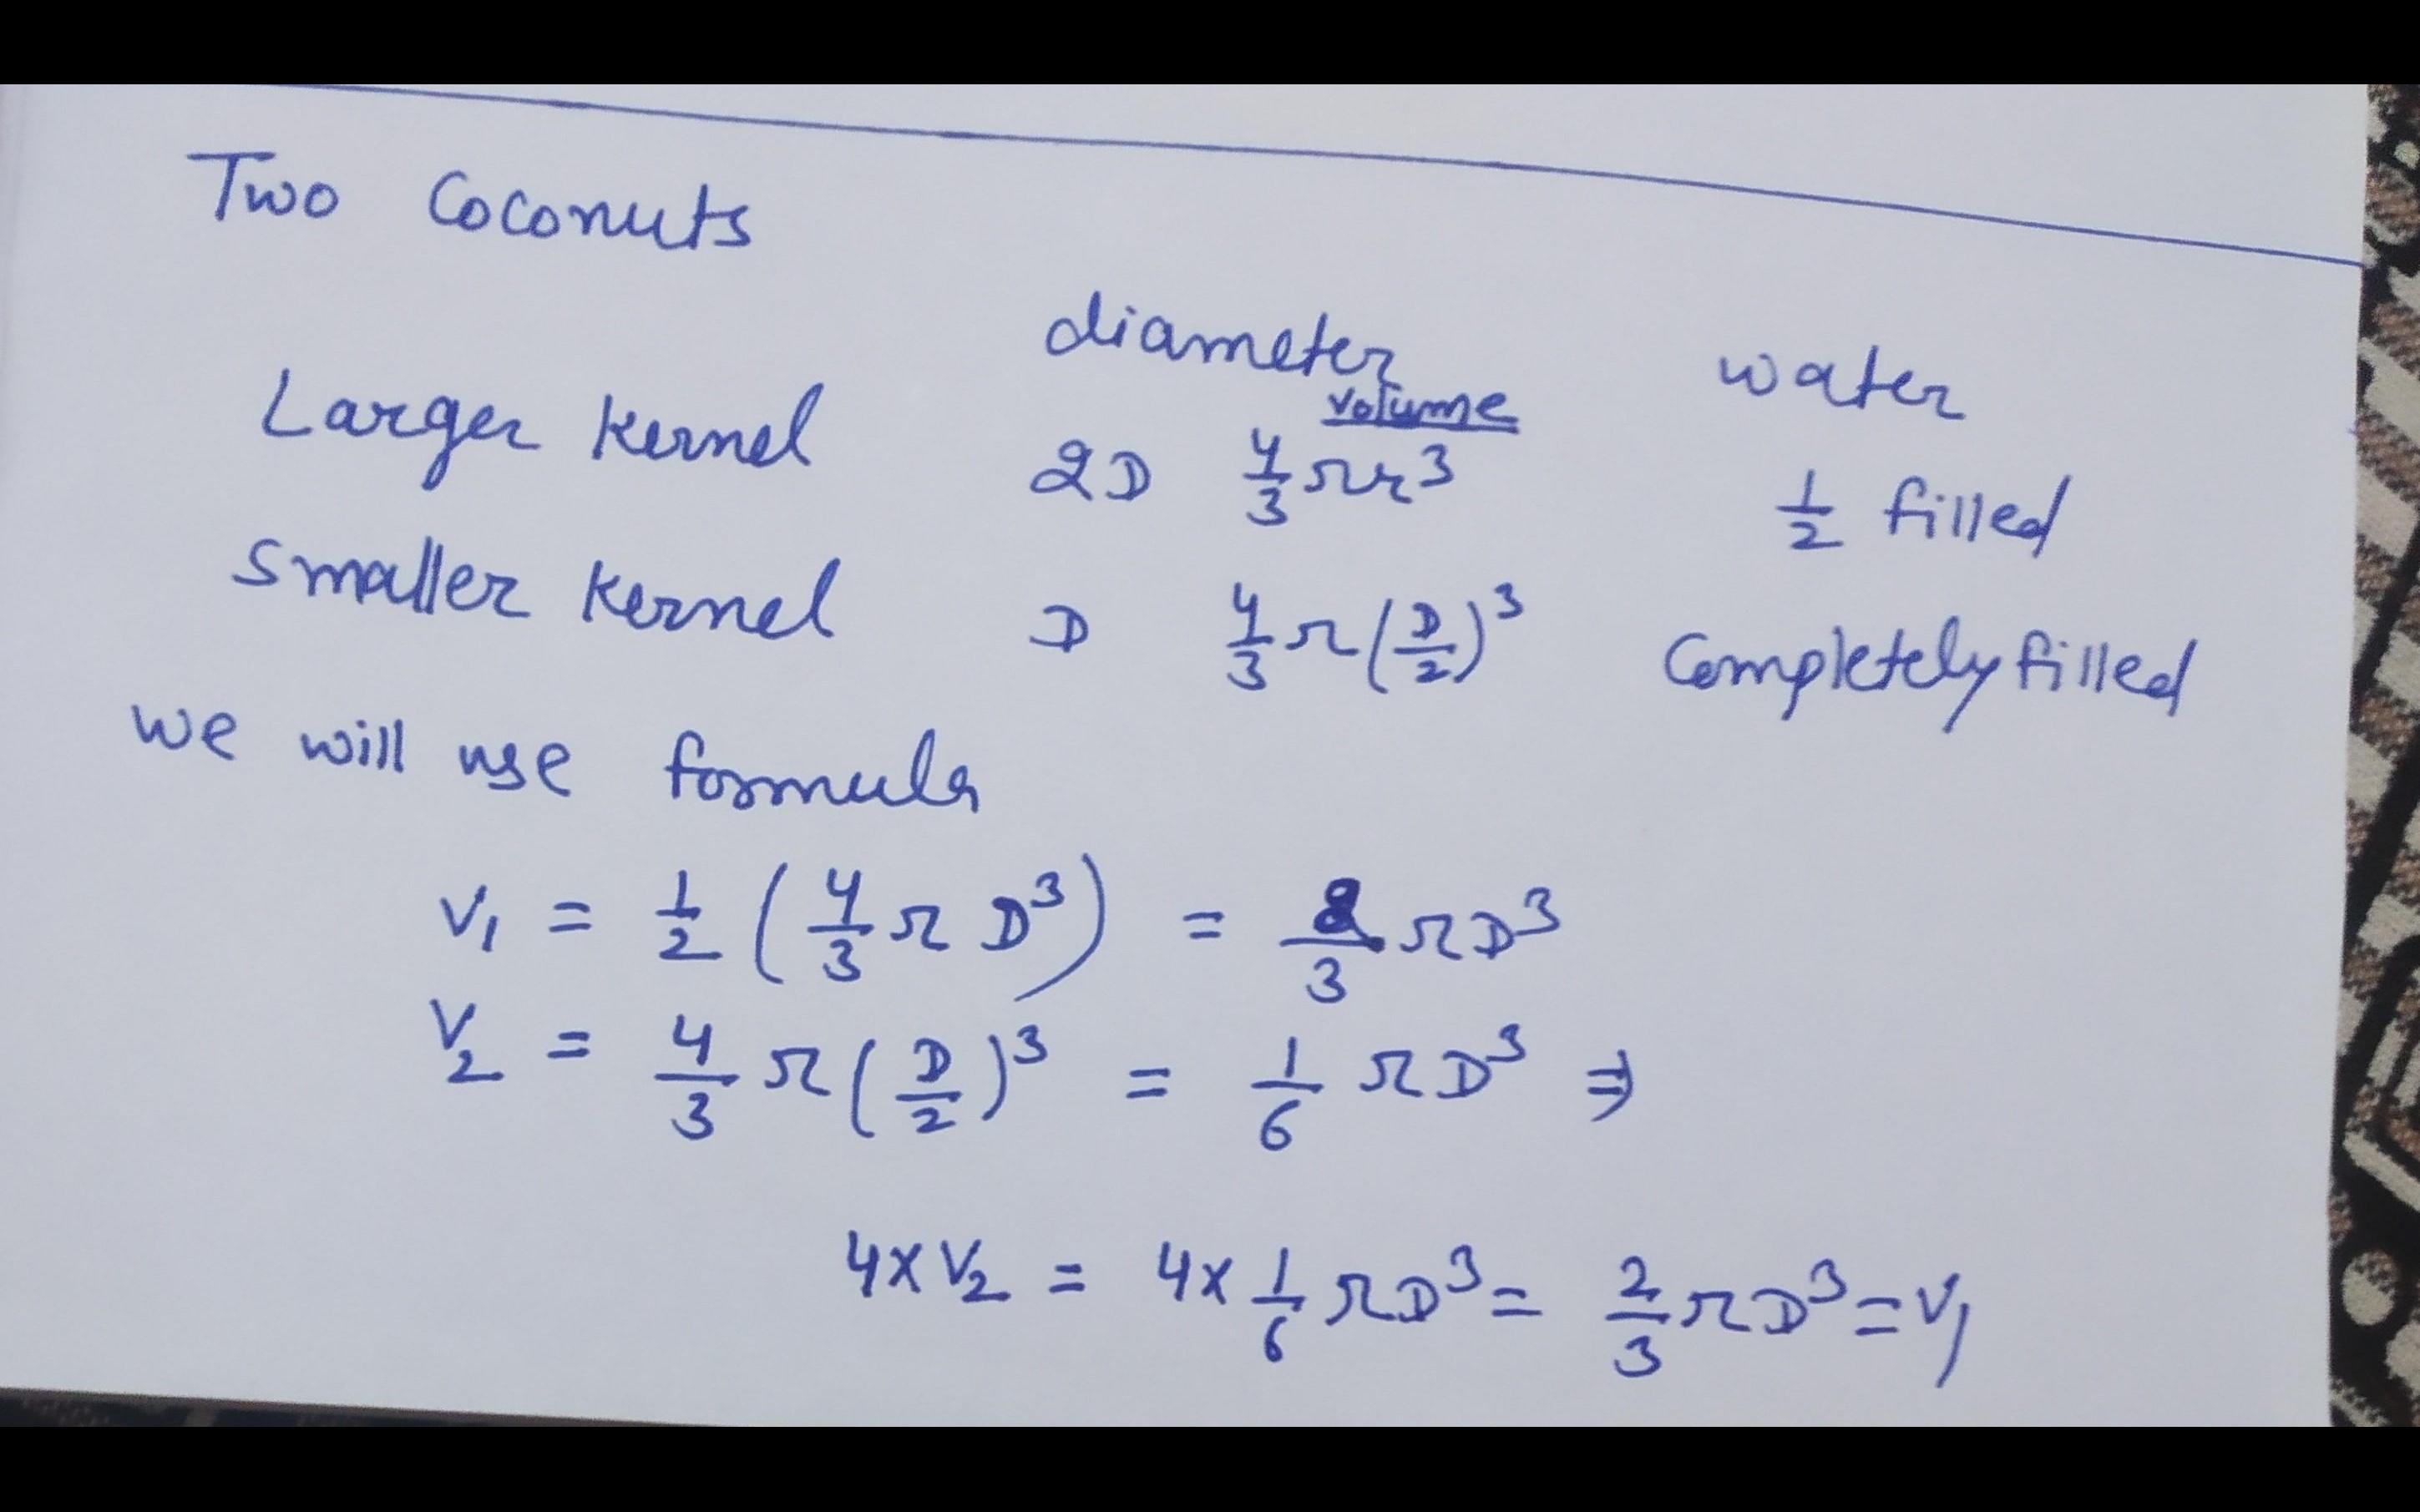 Two Coconuts
diameter
volume
water
Larger Kernel 2D 4/3 πr³ 1/2 filled
Smaller Kernel D 4/3 π(D/2)³ Completely filled
we will use formula
V₁ = 1/2 (4/3 π D³) = 2/3 πD³
V₂ = 4/3 π(D/2)³ = 1/6 πD³ ⇒
4×V₂ = 4×1/6 πD³ = 2/3 πD³ = V₁